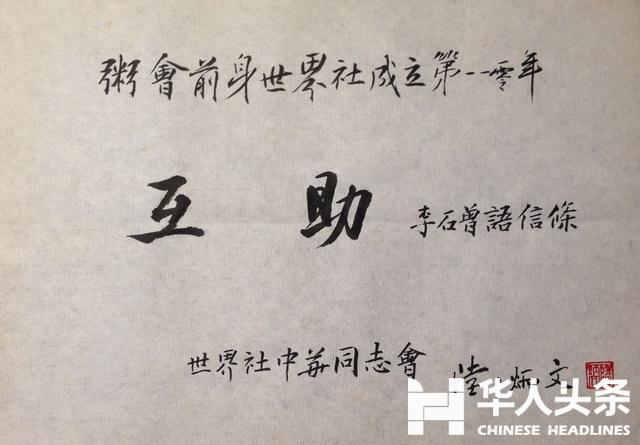 粥會前身世界社成立第一一零年
互助
李石曾語信條
世界社中華同志會
陸炳文
华人头条
CHINESE HEADLINES